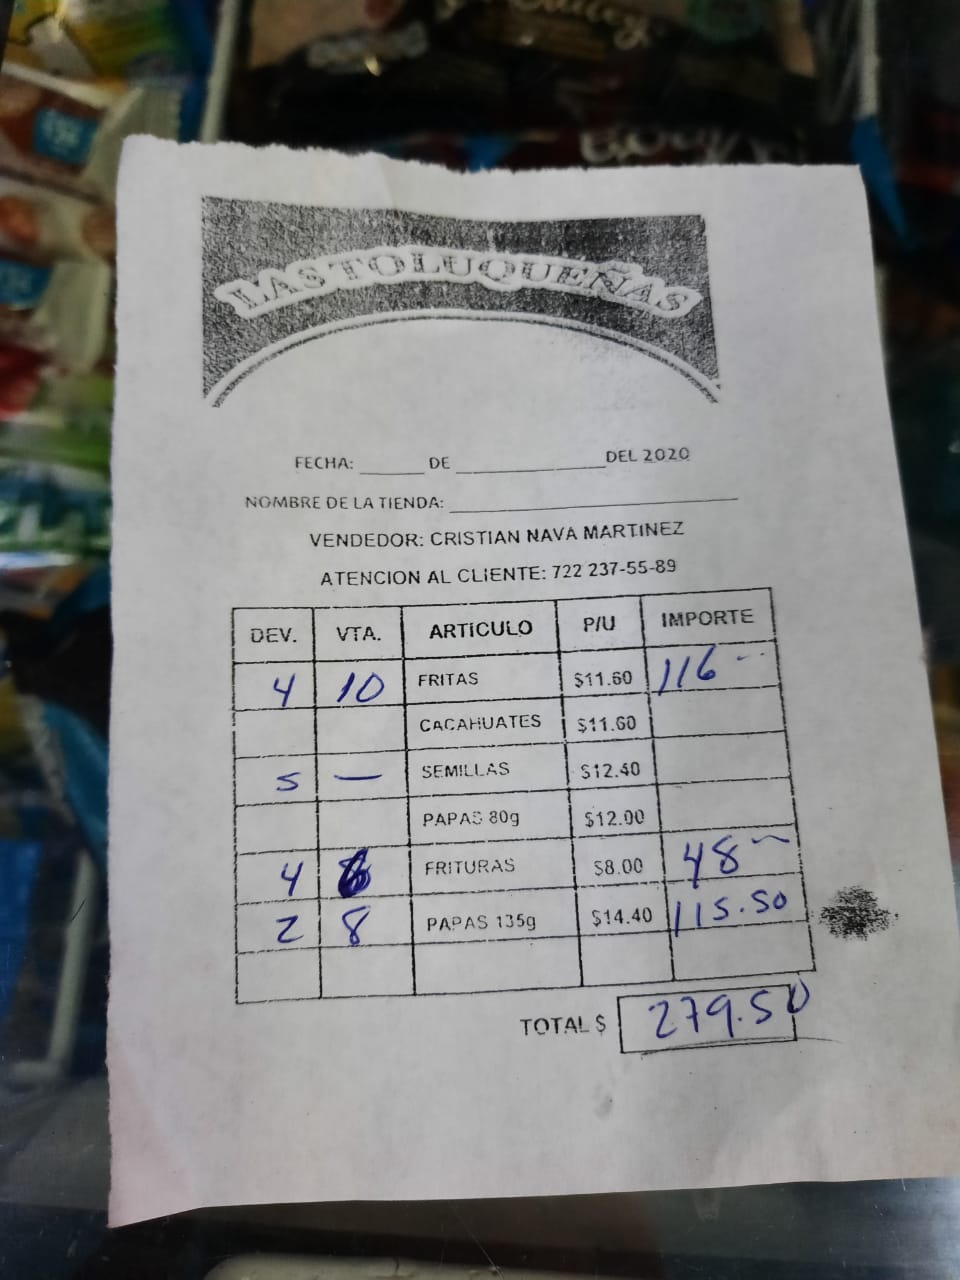 LAS TOLUQUEÑAS
FECHA: ______ DE ______________ DEL 2020
NOMBRE DE LA TIENDA: ___________________________
VENDEDOR: CRISTIAN NAVA MARTINEZ
ATENCION AL CLIENTE: 722 237-55-89
DEV. VTA. ARTICULO P/U IMPORTE
4 10 FRITAS $11.60 116 --
CACAHUATES $11.60
5 — SEMILLAS $12.40
PAPAS 80g $12.00
4 6 FRITURAS $8.00 48 ~
2 8 PAPAS 135g $14.40 115.50
TOTAL $ 279.50